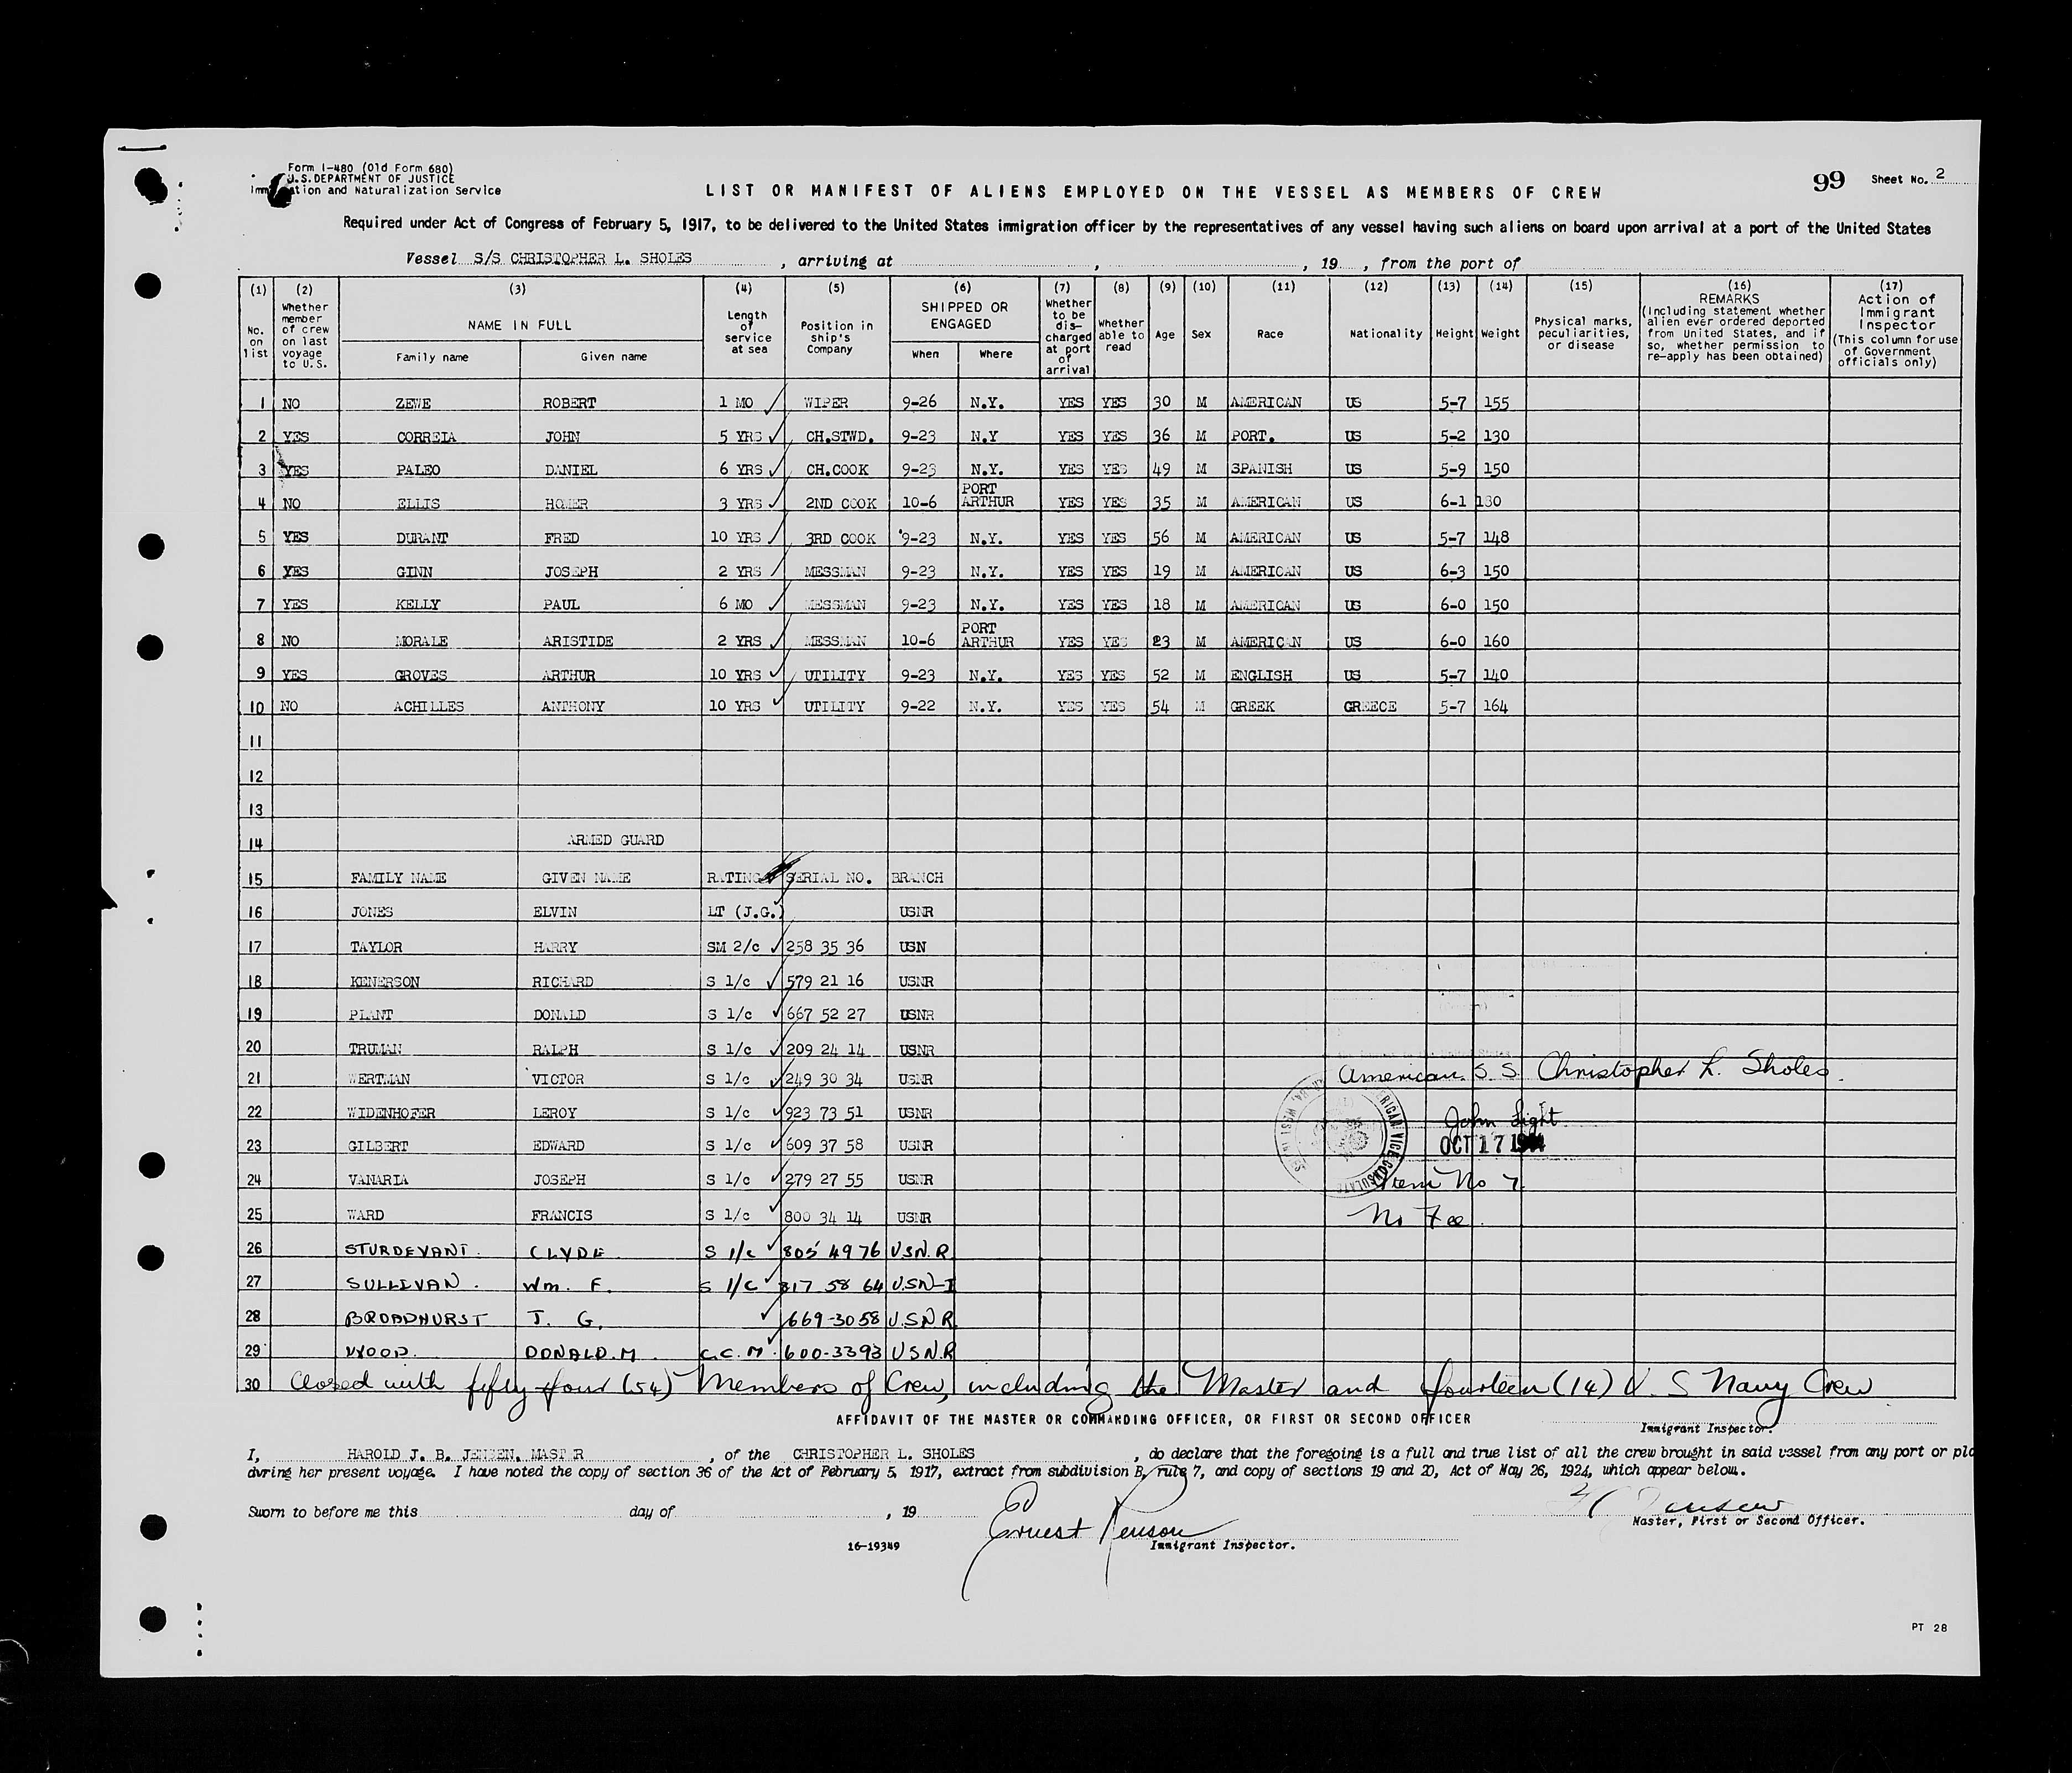 Form I-480 (Old Form 680)
U.S. DEPARTMENT OF JUSTICE
Immigration and Naturalization Service
LIST OR MANIFEST OF ALIENS EMPLOYED ON THE VESSEL AS MEMBERS OF CREW
99 Sheet No. 2
Required under Act of Congress of February 5, 1917, to be delivered to the United States immigration officer by the representatives of any vessel having such aliens on board upon arrival at a port of the United States
Vessel S/S CHRISTOPHER L. SHOLES, arriving at , , 19 , from the port of
(1) No. on list
(2) Whether member of crew on last voyage to U.S.
(3) NAME IN FULL Family name Given name
(4) Length of service at sea
(5) Position in ship's Company
(6) SHIPPED OR ENGAGED When Where
(7) Whether to be discharged at port of arrival
(8) Whether able to read
(9) Age
(10) Sex
(11) Race
(12) Nationality
(13) Height
(14) Weight
(15) Physical marks, peculiarities, or disease
(16) REMARKS (Including statement whether alien ever ordered deported from United States, and if so, whether permission to re-apply has been obtained)
(17) Action of Immigrant Inspector (This column for use of Government officials only)
1 NO ZEWE ROBERT 1 MO WIPER 9-26 N.Y. YES YES 30 M AMERICAN US 5-7 155
2 YES CORREIA JOHN 5 YRS CH.STWD. 9-23 N.Y YES YES 36 M PORT. US 5-2 130
3 YES PALEO DANIEL 6 YRS CH.COOK 9-23 N.Y. YES YES 49 M SPANISH US 5-9 150
4 NO ELLIS HOMER 3 YRS 2ND COOK 10-6 PORT ARTHUR YES YES 35 M AMERICAN US 6-1
5 YES DURANT FRED 10 YRS 3RD COOK 9-23 N.Y. YES YES 56 M AMERICAN US 5-7 148
6 YES GINN JOSEPH 2 YRS MESSMAN 9-23 N.Y. YES YES 19 M AMERICAN US 6-3 150
7 YES KELLY PAUL 6 MO MESSMAN 9-23 N.Y. YES YES 18 M AMERICAN US 6-0 150
8 NO MORALE ARISTIDE 2 YRS MESSMAN 10-6 PORT ARTHUR YES YES 23 M AMERICAN US 6-0 160
9 YES GROVES ARTHUR 10 YRS UTILITY 9-23 N.Y. YES YES 52 M ENGLISH US 5-7 140
10 NO ACHILLES ANTHONY 10 YRS UTILITY 9-22 N.Y. YES YES 54 M GREEK GREECE 5-7 164
11
12
13
14 ARMED GUARD
15 FAMILY NAME GIVEN NAME RATING SERIAL NO. BRANCH
16 JONES ELVIN LT (J.G.) USNR
17 TAYLOR HARRY SM 2/c 258 35 36 USN
18 KENERSON RICHARD S 1/c 579 21 16 USNR
19 PLANT DONALD S 1/c 667 52 27 USNR
20 TRUMAN RALPH S 1/c 209 24 14 USNR
21 WERTMAN VICTOR S 1/c 249 30 34 USNR
American S.S. Christopher L. Sholes.
22 WIDENHOFER LEROY S 1/c 923 73 51 USNR
John Light
23 GILBERT EDWARD S 1/c 609 37 58 USNR
OCT 17 1944
24 VANARIA JOSEPH S 1/c 279 27 55 USNR
Item No 7
25 WARD FRANCIS S 1/c 800 34 14 USNR
No Fee.
AMERICAN VICE CONSULATE
26 STURDEVANT. CLYDE S 1/c 805 4976 U.S.N.R.
27 SULLIVAN. Wm. F. S 1/c 817 58 64 U.S.N-I
28 BROADHURST J. G. 669-3058 U.S.N.R.
29 WOOD. DONALD.M. C.C.M. 600-3393 U.S.N.R
30 Closed with fifty four (54) Members of Crew, including the Master and fourteen (14) U.S Navy Crew
AFFIDAVIT OF THE MASTER OR COMMANDING OFFICER, OR FIRST OR SECOND OFFICER
Immigrant Inspector.
I, HAROLD J. B. JENSEN, MASTER, of the CHRISTOPHER L. SHOLES, do declare that the foregoing is a full and true list of all the crew brought in said vessel from any port or pla
during her present voyage. I have noted the copy of section 36 of the Act of February 5, 1917, extract from subdivision B, rule 7, and copy of sections 19 and 20, Act of May 26, 1924, which appear below.
Sworn to before me this day of , 19
Ernest Renson
H Jensen
Master, First or Second Officer.
16-19349 Immigrant Inspector.
PT 28